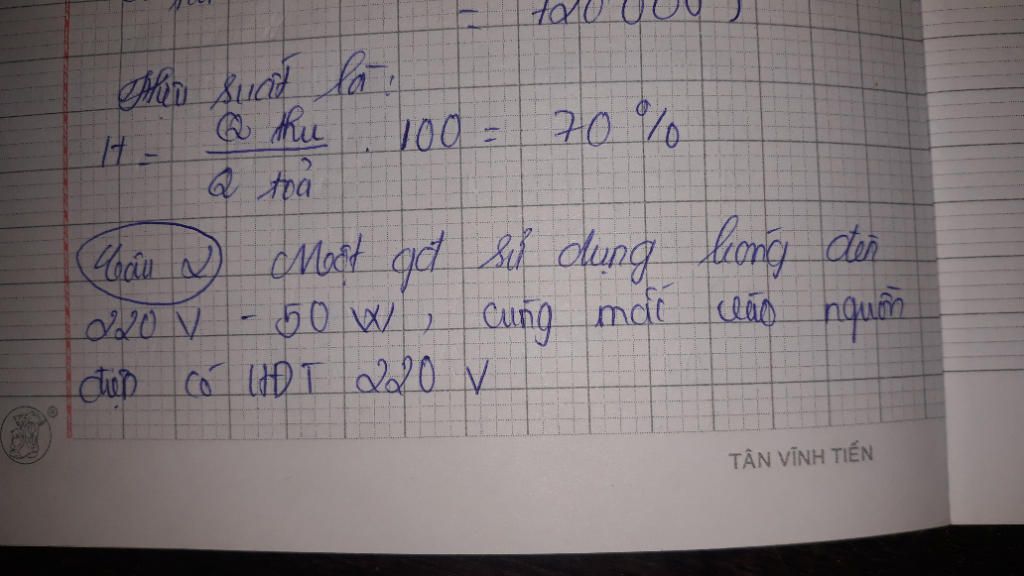 = 720 000 J
Hiệu suất là:
H = Q thu / Q toả . 100 = 70 %
Câu 2 Một gđ sử dụng bóng đèn
220 V - 50 W, cùng mắc vào nguồn
điện có HĐT 220 V
TÂN VĨNH TIẾN